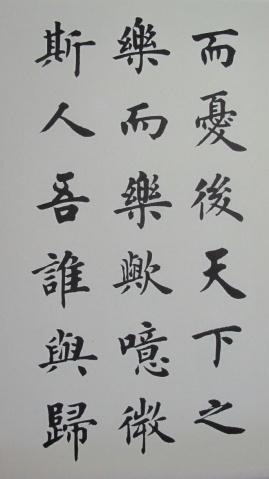 而憂後天下之
樂而樂歟噫微
斯人吾誰與歸